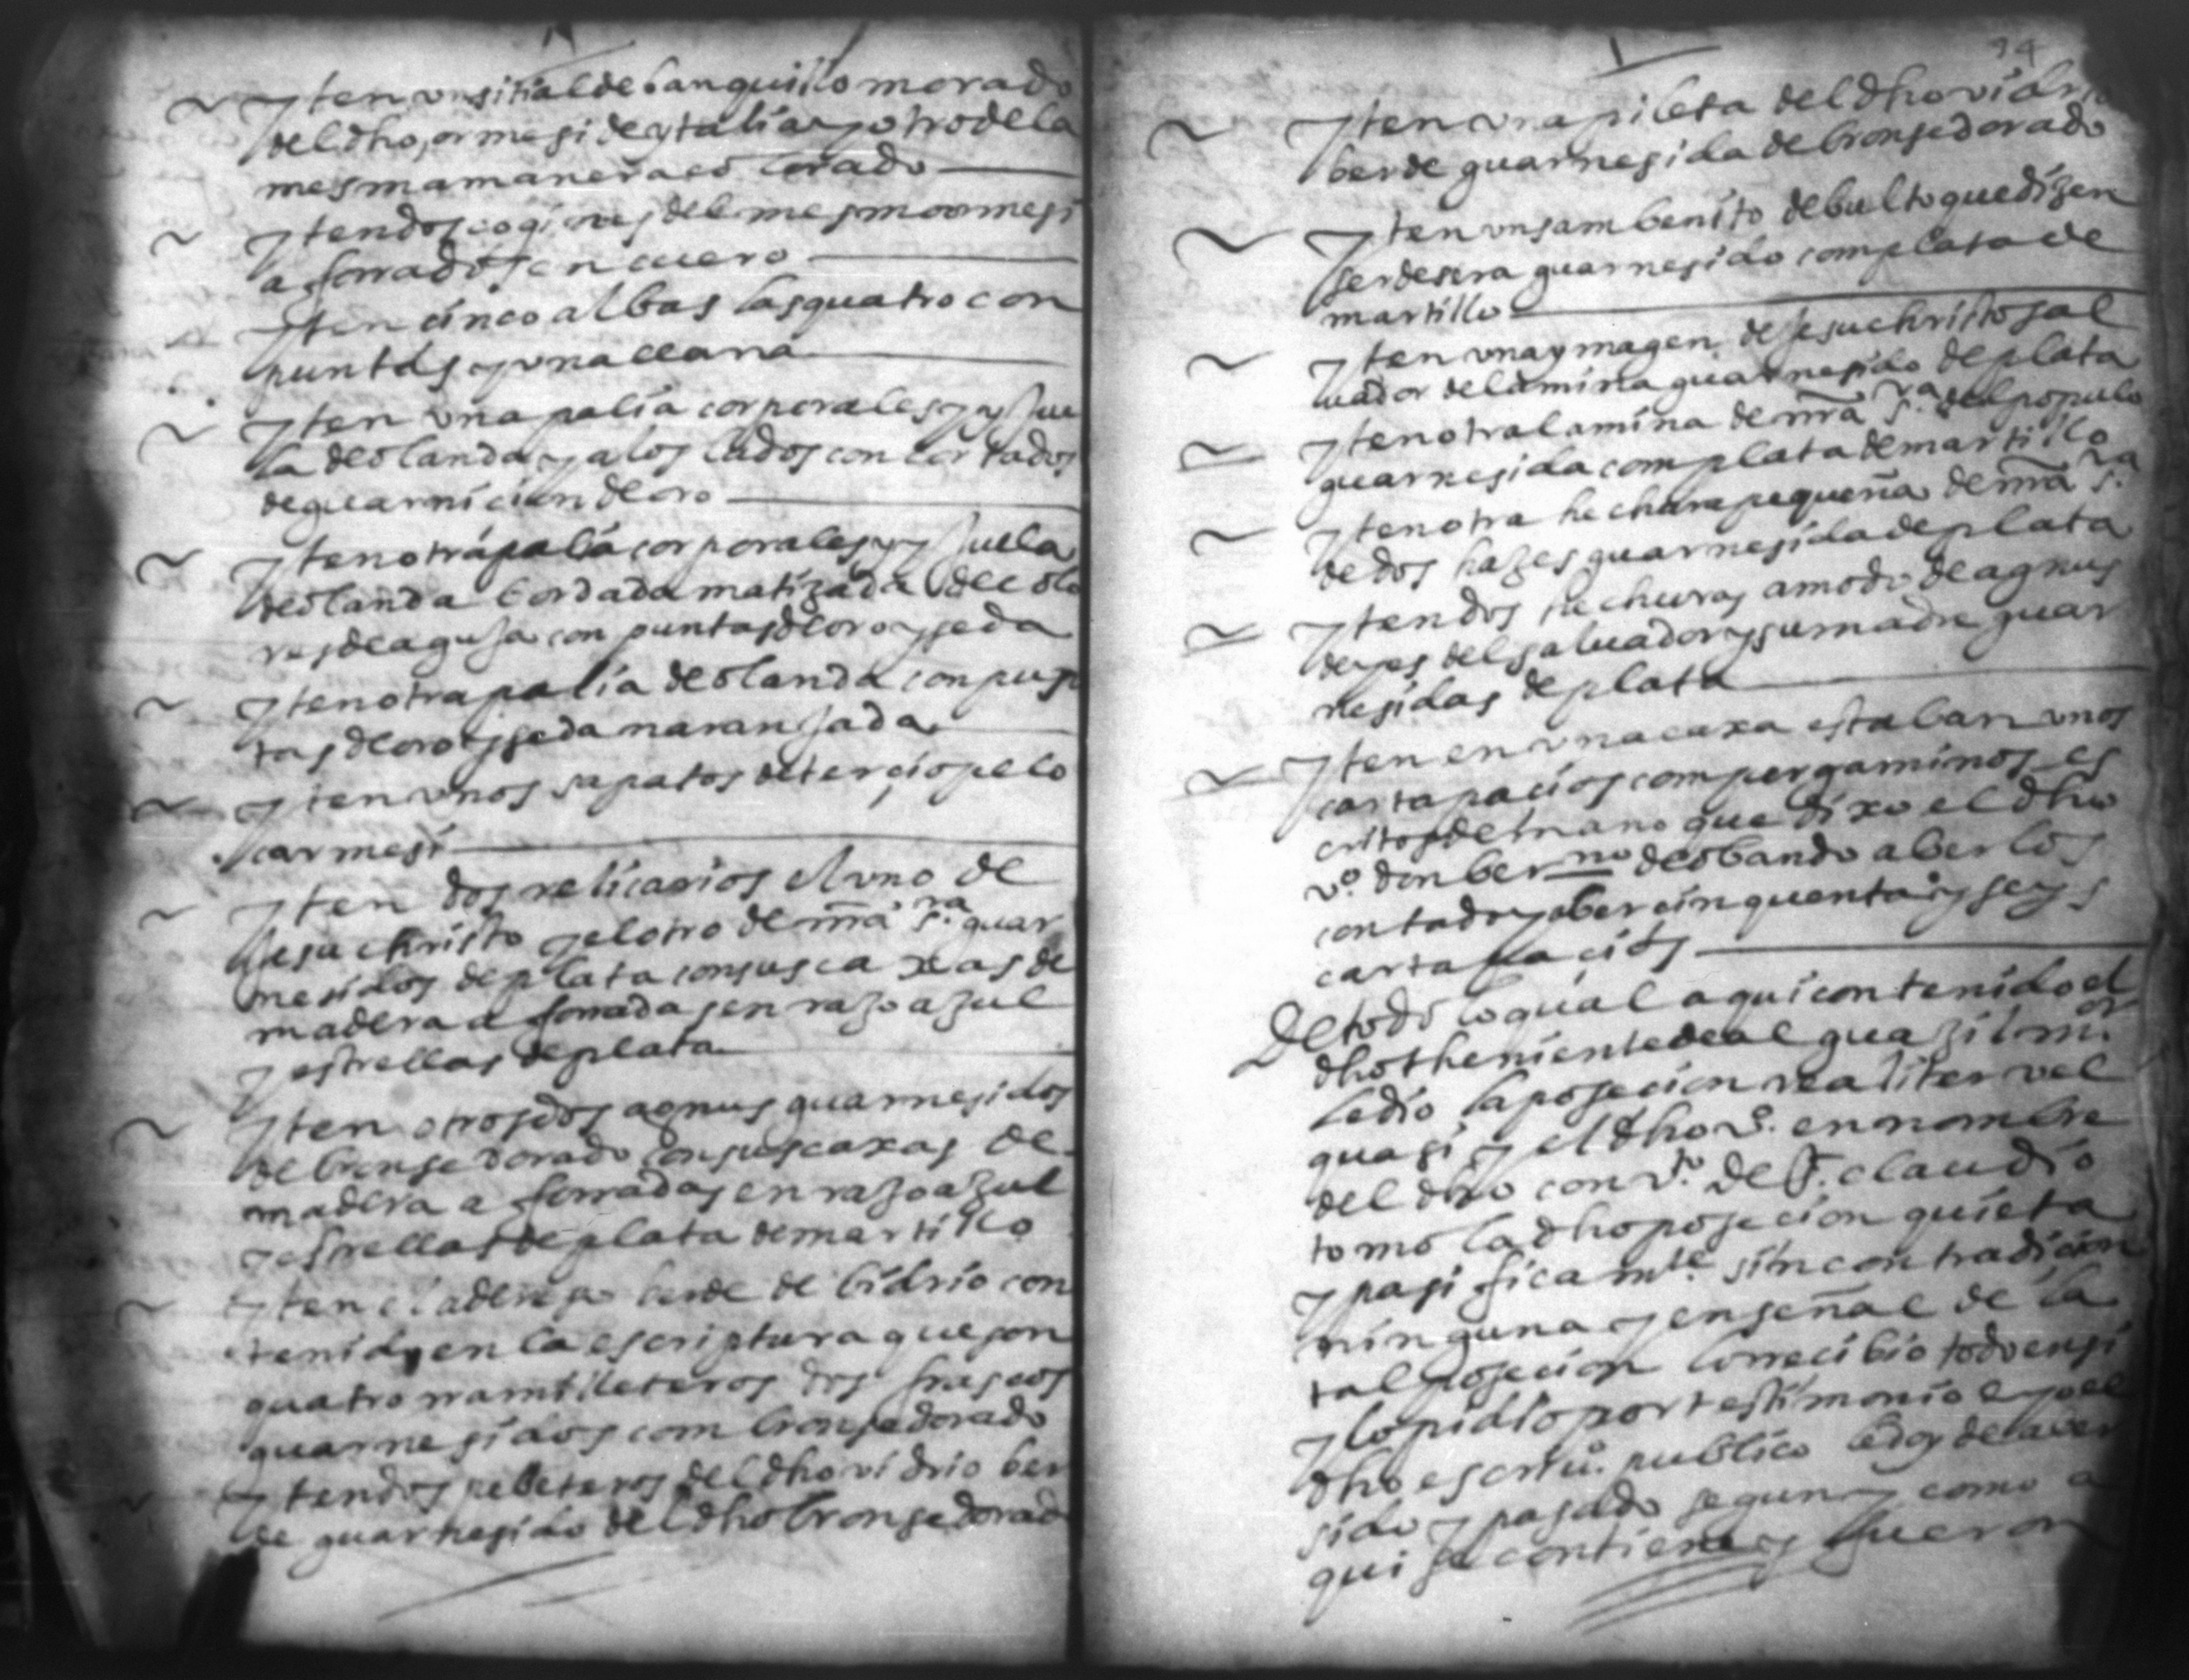 yten un sitial de banquillo morado
del dho ormesi de ytalia y otro dela
mesma manera colorado
yten dos coginesdel mesmo ormesi
aforrados en cuero
yten cinco albas las quatro con
puntas y una llana
yten una palia corporales y yjue
la de olanda y a los lados con cortados
de guarnicion de oro
yten otra palia corporales y yjuela
de olanda bordada matizada de colo
res de aguja con puntas de oro y seda
yten otra palia de olanda con pun
tas de oro y seda naranjada
yten unos sapatos de terciopelo
carmesi
yten dos relicarios el uno de
Jesuchristo y el otro de nra s.ra guar
nesidos de plata con sus caxas de
madera aforradas en razo azul
y estrellas de plata
yten otros dos agnus guarnesidos
de bronse dorado con sus caxas de
madera aforradas en razo azul
y estrellas de plata de martillo
yten el adereso berde de bidrio con
tenido en la escriptura que son
quatro rramilleteros dos frascos
guarnesidos com bronse dorado
yten dos pebeteros del dho vidrio ber
de guarnesido del dho bronse dorado
94
yten una pileta del dho vidrio
berde guarnesida de bronse dorado
yten un sam benito de bulto que dizen
ser de sera guarnesido com plata de
martillo
yten una ymagen de Jesuchristo sal
uador de lamina guarnesido de plata
yten otra lamina de nra s.ra del populo
guarnesida com plata de martillo
yten otra hechura pequeña de nra s.ra
de dos hazes guarnesida de plata
yten dos hechuras a modo de agnus
deyes del saluador y su madre guar
nesidas de plata
yten en una caxa estaban unos
cartapacios com pergaminos es
critos de mano que dixo el dho
v.o don ber.no de obando aberlos
contado y aber cinquenta y seys
cartapacios
De todo lo qual aqui contenido el
dho theniente de alguazil m.or
le dio la posecion realiter vel
quasi y el dho v.o en nombre
del dho conv.to de S. claudio
tomó la dha posecion quieta
y pasificam.te sin contradicion
ninguna y en señal de la
tal posecion lo rrecibio todo en si
y lo pidio por testimonio e yo el
dho escriu.o publico le doy de aver
sido y pasado segun y como a
qui se contiene y fueron